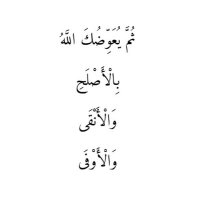 ثُمَّ يُعَوِّضُكَ اللَّهُ
بِالْأَصْلَحِ
وَالْأَنْقَى
وَالْأَوْفَى